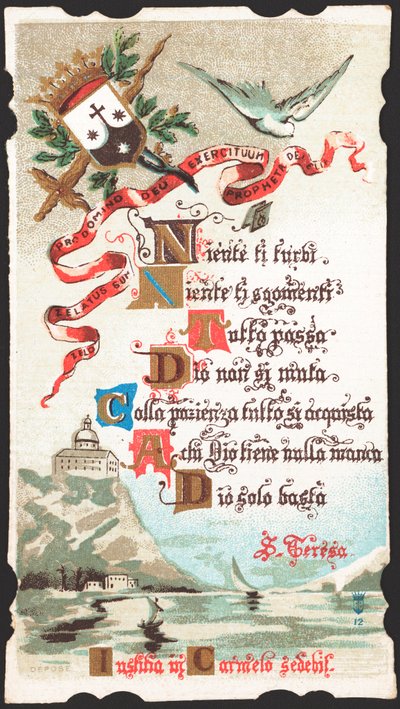 ZELO
ZELATUS SUM
PRO DOMINO
DEO
EXERCITUUM
PROPHETA DEI
Niente ti turbi
Niente ti sgomenti
Tutto passa
Dio non si muta
Colla pazienza tutto si acquista
A chi Dio tiene nulla manca
Dio solo basta
S. Teresa.
12
DEPOSE
Iustitia in Carmelo sedebit.